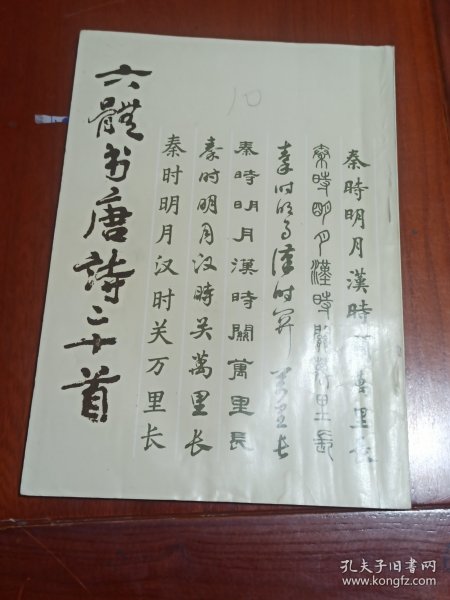 六體书唐詩二十首
10
秦時明月漢時關萬里长
秦時明月漢時關萬里長
秦时明月漢时关万里长
秦時明月漢時關萬里長
秦时明月汉時关萬里长
秦时明月汉时关万里长
孔夫子旧书网
www.kongfz.com